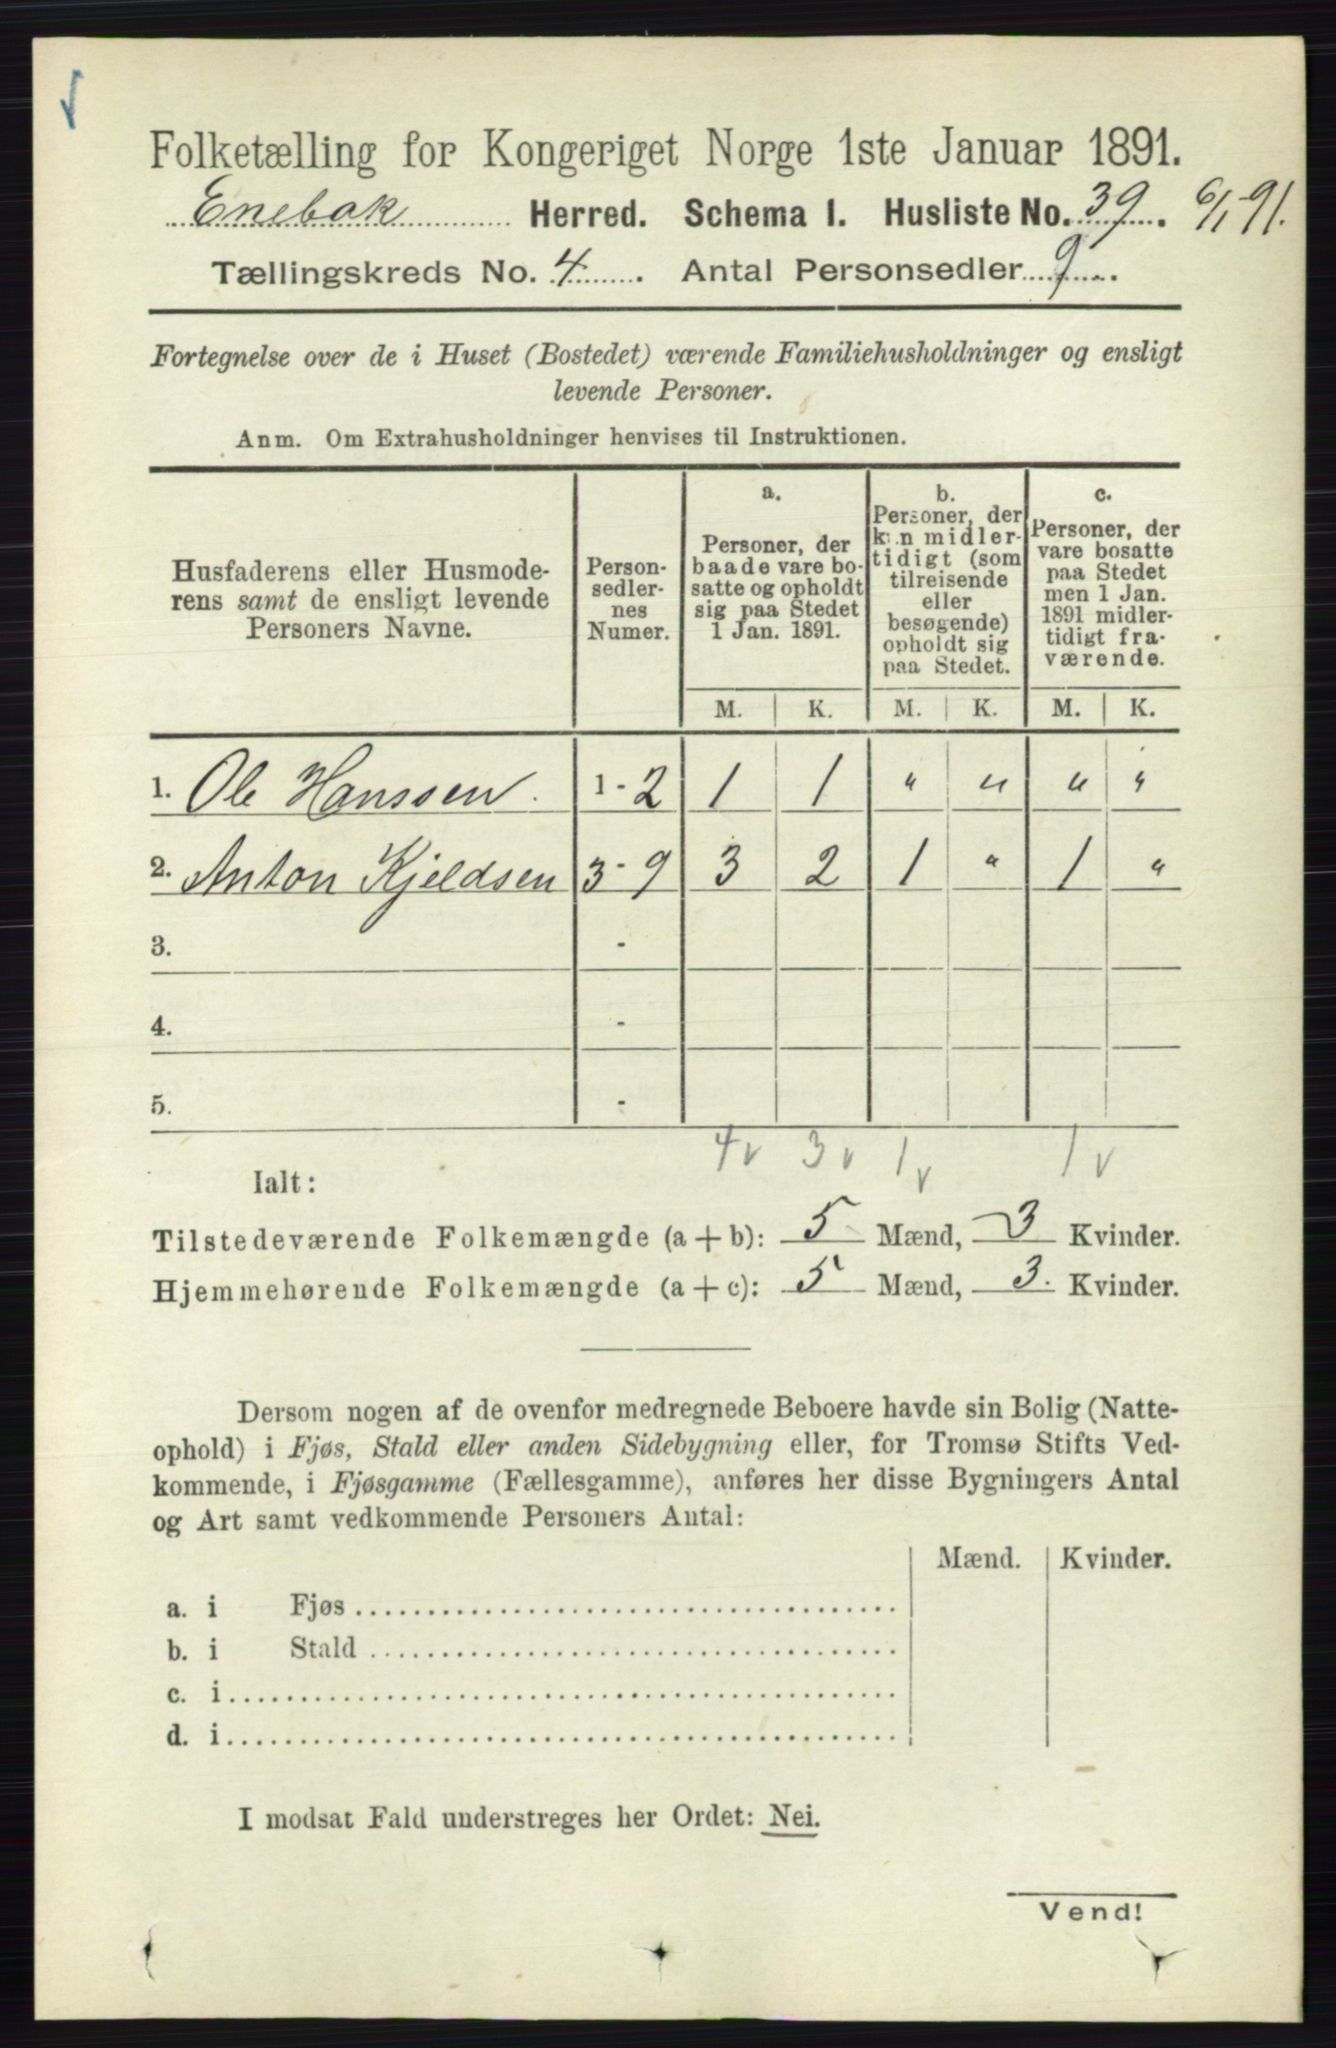 Folketælling for Kongeriget Norge 1ste Januar 1891.
Enebak Herred. Schema I. Husliste No. 39. 6/1-91.
Tællingskreds No. 4. Antal Personsedler 9.
Fortegnelse over de i Huset (Bostedet) værende Familiehusholdninger og ensligt
levende Personer.
Anm. Om Extrahusholdninger henvises til Instruktionen.
Husfaderens eller Husmode-
rens samt de ensligt levende
Personers Navne.
Person-
sedler-
nes
Numer.
a.
Personer, der
baade vare bo-
satte og opholdt
sig paa Stedet
1 Jan. 1891.
b.
Personer, der
kun midler-
tidigt (som
tilreisende
eller
besøgende)
opholdt sig
paa Stedet.
c.
Personer, der
vare bosatte
paa Stedet
men 1 Jan.
1891 midler-
tidigt fra-
værende.
M. K. M. K. M. K.
1. Ole Hanssen. 1-2 1 1 " " " "
2. Anton Kjeldsen 3-9 3 2 1 " 1 "
3. -
4. -
5. -
4 v 3 v 1 v 1 v
Ialt:
Tilstedeværende Folkemængde (a + b): 5 Mænd, 3 Kvinder.
Hjemmehørende Folkemængde (a + c): 5 Mænd, 3. Kvinder.
Dersom nogen af de ovenfor medregnede Beboere havde sin Bolig (Natte-
ophold) i Fjøs, Stald eller anden Sidebygning eller, for Tromsø Stifts Ved-
kommende, i Fjøsgamme (Fællesgamme), anføres her disse Bygningers Antal
og Art samt vedkommende Personers Antal:
Mænd. Kvinder.
a. i Fjøs
b. i Stald
c. i
d. i
I modsat Fald understreges her Ordet: Nei.
Vend!